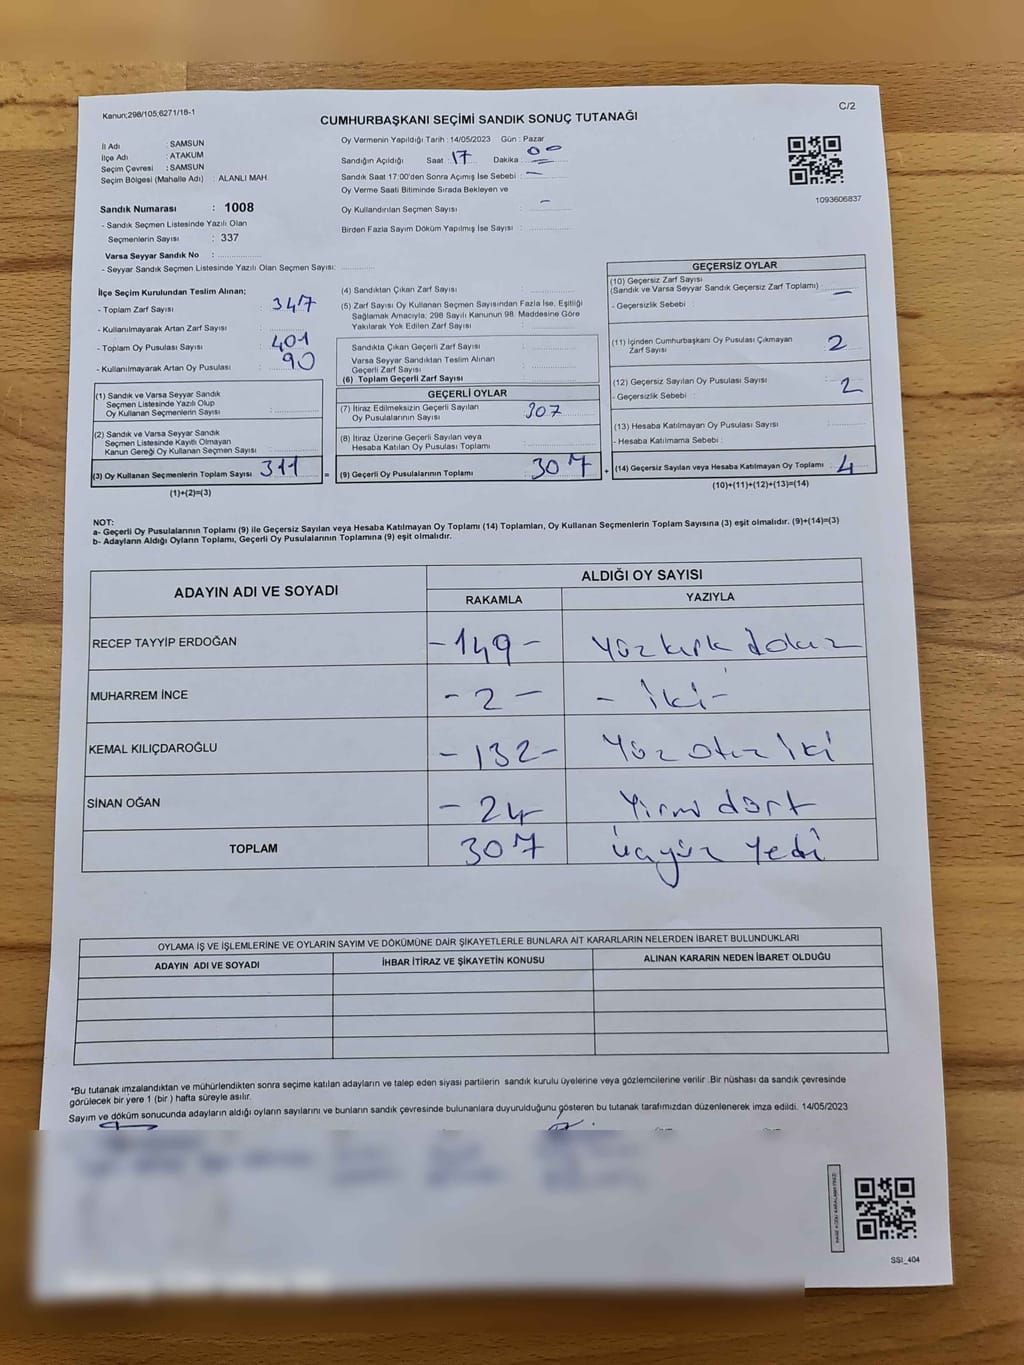 Kanun;298/105;6271/18-1
C/2
CUMHURBAŞKANI SEÇİMİ SANDIK SONUÇ TUTANAĞI
İl Adı : SAMSUN
İlçe Adı : ATAKUM
Seçim Çevresi : SAMSUN
Seçim Bölgesi (Mahalle Adı) : ALANLI MAH
Oy Vermenin Yapıldığı Tarih : 14/05/2023 Gün : Pazar
Sandığın Açıldığı Saat : 17 Dakika : 00
Sandık Saat 17:00'den Sonra Açımış İse Sebebi : -
Oy Verme Saati Bitiminde Sırada Bekleyen ve
Oy Kullandırılan Seçmen Sayısı : -
Birden Fazla Sayım Döküm Yapılmış İse Sayısı :
1093606837
Sandık Numarası : 1008
- Sandık Seçmen Listesinde Yazılı Olan
Seçmenlerin Sayısı : 337
Varsa Seyyar Sandık No :
- Seyyar Sandık Seçmen Listesinde Yazılı Olan Seçmen Sayısı:
İlçe Seçim Kurulundan Teslim Alınan;
- Toplam Zarf Sayısı : 347
- Kullanılmayarak Artan Zarf Sayısı :
- Toplam Oy Pusulası Sayısı : 401
- Kullanılmayarak Artan Oy Pusulası : 90
(1) Sandık ve Varsa Seyyar Sandık
Seçmen Listesinde Yazılı Olup
Oy Kullanan Seçmenlerin Sayısı :
(2) Sandık ve Varsa Seyyar Sandık
Seçmen Listesinde Kayıtlı Olmayan
Kanun Gereği Oy Kullanan Seçmen Sayısı :
(3) Oy Kullanan Seçmenlerin Toplam Sayısı : 311
(1)+(2)=(3)
(4) Sandıktan Çıkan Zarf Sayısı :
(5) Zarf Sayısı Oy Kullanan Seçmen Sayısından Fazla İse, Eşitliği
Sağlamak Amacıyla, 298 Sayılı Kanunun 98. Maddesine Göre
Yakılarak Yok Edilen Zarf Sayısı :
Sandıkta Çıkan Geçerli Zarf Sayısı :
Varsa Seyyar Sandıktan Teslim Alınan
Geçerli Zarf Sayısı :
(6) Toplam Geçerli Zarf Sayısı :
GEÇERLİ OYLAR
(7) İtiraz Edilmeksizin Geçerli Sayılan
Oy Pusulalarının Sayısı : 307
(8) İtiraz Üzerine Geçerli Sayılan veya
Hesaba Katılan Oy Pusulası Toplamı :
= (9) Geçerli Oy Pusulalarının Toplamı : 307
GEÇERSİZ OYLAR
(10) Geçersiz Zarf Sayısı
(Sandık ve Varsa Seyyar Sandık Geçersiz Zarf Toplamı) : -
- Geçersizlik Sebebi :
(11) İçinden Cumhurbaşkanı Oy Pusulası Çıkmayan
Zarf Sayısı : 2
(12) Geçersiz Sayılan Oy Pusulası Sayısı : 2
- Geçersizlik Sebebi :
(13) Hesaba Katılmayan Oy Pusulası Sayısı :
- Hesaba Katılmama Sebebi :
+ (14) Geçersiz Sayılan veya Hesaba Katılmayan Oy Toplamı : 4
(10)+(11)+(12)+(13)=(14)
NOT:
a- Geçerli Oy Pusulalarının Toplamı (9) ile Geçersiz Sayılan veya Hesaba Katılmayan Oy Toplamı (14) Toplamları, Oy Kullanan Seçmenlerin Toplam Sayısına (3) eşit olmalıdır. (9)+(14)=(3)
b- Adayların Aldığı Oyların Toplamı, Geçerli Oy Pusulalarının Toplamına (9) eşit olmalıdır.
ADAYIN ADI VE SOYADI
ALDIĞI OY SAYISI
RAKAMLA YAZIYLA
RECEP TAYYİP ERDOĞAN -149- Yüz kırk dokuz
MUHARREM İNCE -2- -iki-
KEMAL KILIÇDAROĞLU -132- Yüz otuz iki
SİNAN OĞAN -24 Yirmi dört
TOPLAM 307 üçyüz yedi
OYLAMA İŞ VE İŞLEMLERİNE VE OYLARIN SAYIM VE DÖKÜMÜNE DAİR ŞİKAYETLERLE BUNLARA AİT KARARLARIN NELERDEN İBARET BULUNDUKLARI
ADAYIN ADI VE SOYADI İHBAR İTİRAZ VE ŞİKAYETİN KONUSU ALINAN KARARIN NEDEN İBARET OLDUĞU
*Bu tutanak imzalandıktan ve mühürlendikten sonra seçime katılan adayların ve talep eden siyasi partilerin sandık kurulu üyelerine veya gözlemcilerine verilir .Bir nüshası da sandık çevresinde
görülecek bir yere 1 (bir ) hafta süreyle asılır.
Sayım ve döküm sonucunda adayların aldığı oyların sayılarını ve bunların sandık çevresinde bulunanlara duyurulduğunu gösteren bu tutanak tarafımızdan düzenlenerek imza edildi. 14/05/2023
SSI_404